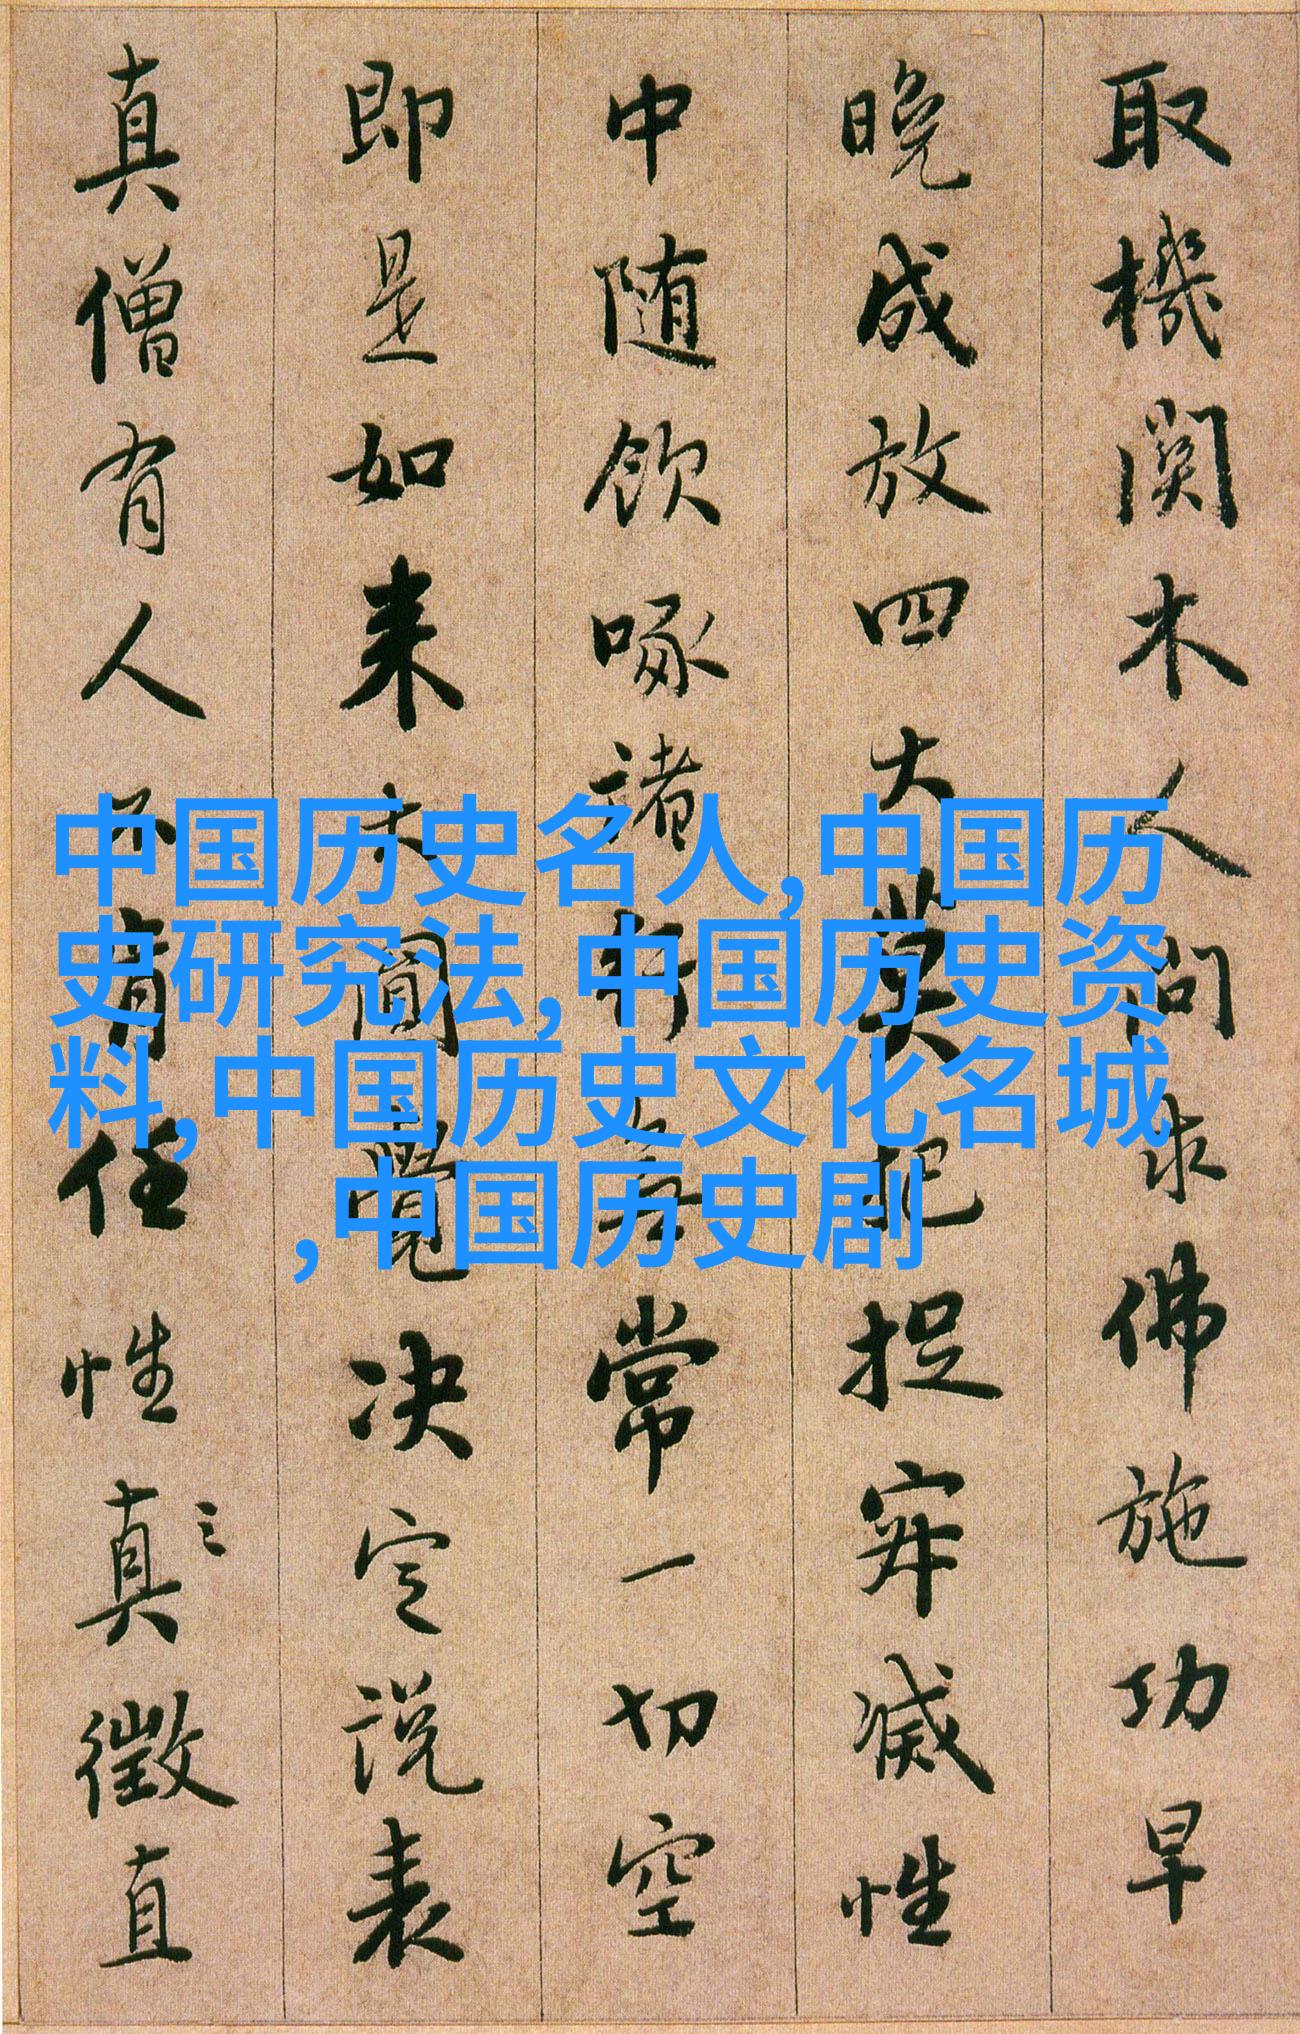 取機関木人問求佛施功早
晚成放四大莫把捉寂滅性
中随飲啄諸行無常一切空
即是如来大圓覺决定説表
真僧有人不肯任性真徵直
中国历史名人,中国历
史研究法,中国历史资
料,中国历史文化名城
,中国历史剧